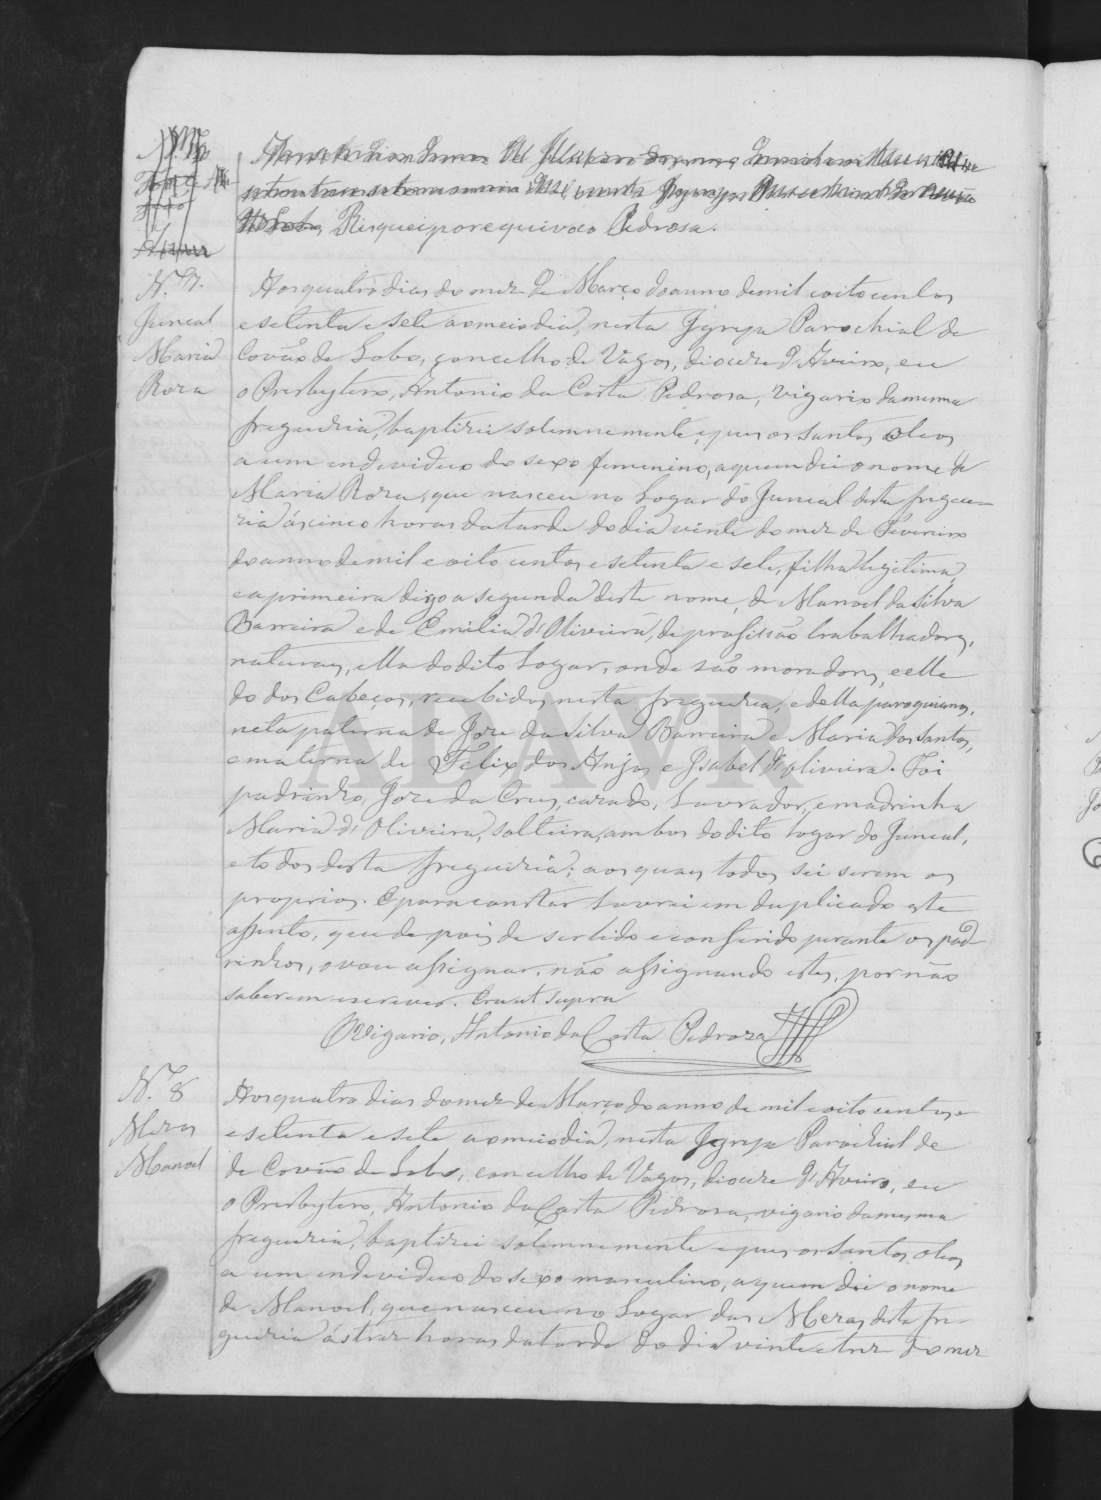 Risquei por equivoco Pedrosa.
N.º 7.
Juncal
Maria
Roza
Aos quatro dias do mez de Março do anno de mil e oito centos
e setenta e sete ao meio dia, nesta Igreja Parochial de
Covão do Lobo, concelho de Vagos, diocese d'Aveiro, eu
o Presbytero, Antonio da Costa Pedrosa, Vigario da mesma
freguezia, baptizei solemnemente, e puz os santos oleos
a um individuo do sexo femenino, a quem dei o nome de
Maria Roza, que nasceu no Logar do Juncal desta fregue-
zia ás cinco horas da tarde do dia vinte do mez de Fevereiro
do anno de mil e oito centos e setenta e sete, filha legitima,
e a primeira digo a segunda deste nome, de Manoel da Silva
Barreira e de Emilia d'Oliveira, de profissão trabalhadores,
naturaes, ella do dito Logar, onde são moradores, e elle
do dos Cabeços, recebidos nesta freguezia, e della paroquianos,
neta paterna de Joze da Silva Barreira e Maria dos Santos,
e materna de Felix dos Anjos e Izabel d'Oliveira. Foi
padrinho, Joze da Cruz, cazado, Lavrador, e madrinha
Maria d'Oliveira, solteira, ambos do dito logar do Juncal,
e todos desta freguezia; aos quaes todos sei serem os
proprios. E para constar lavrei em duplicado este
assento, que depois de ser lido e conferido perante os pad-
rinhos, o vou assignar, não assignando estes, por não
saberem escrever. Era ut supra
O Vigario, Antonio da Costa Pedroza
N.º 8
Mezas
Manoel
Aos quatro dias do mez de Março do anno de mil e oito centos
e setenta e sete ao meio dia, nesta Igreja Parochial de
de Covão do Lobo, concelho de Vagos, diocese d'Aveiro, eu
o Presbytero, Antonio da Costa Pedrosa, vigario da mesma
freguezia, baptizei solemnemente e puz os santos oleos
a um individuo do sexo masculino, a quem dei o nome
de Manoel, que nasceu no Logar das Mezas desta fre-
guezia ás trez horas da tarde do dia vinte e trez do mez
ADAVR